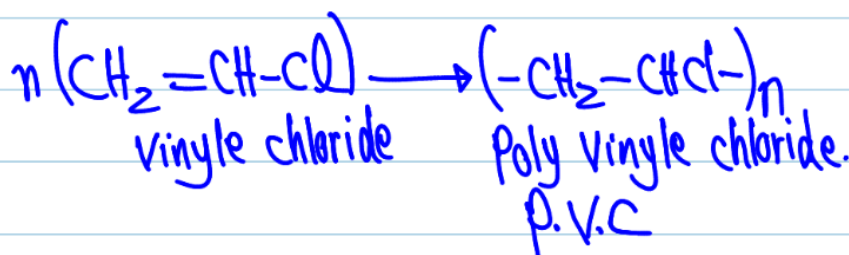 n(CH₂=CH-Cl) → (-CH₂-CHCl-)n
vinyle chloride Poly vinyle chloride.
P.V.C